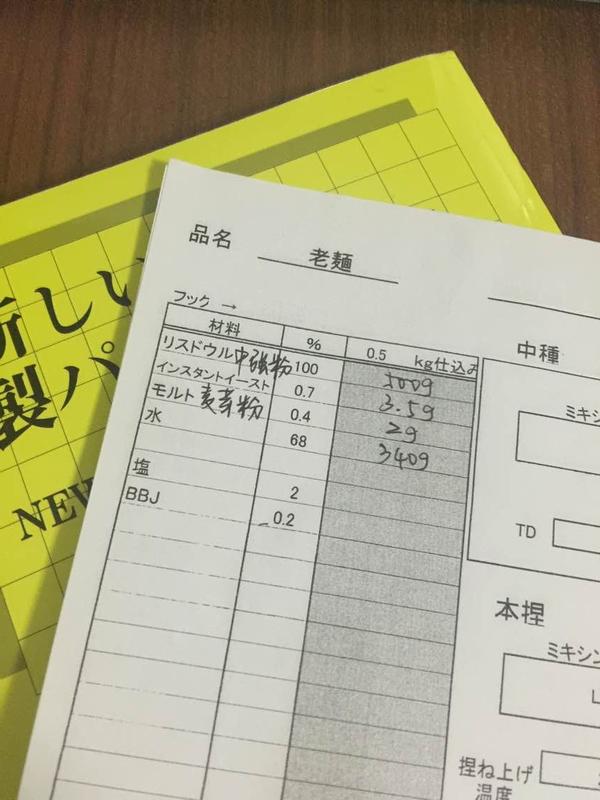 新しい
製パ
NEW
品名 老麺
フック →
材料 % 0.5 kg仕込み
リスドウル中強粉 100 500g
インスタントイースト 0.7 3.5g
モルト麦芽粉 0.4 2g
水 68 340g
塩 2
BBJ 0.2
中種
ミキシン
TD
本捏
ミキシン
L
捏ね上げ
温度